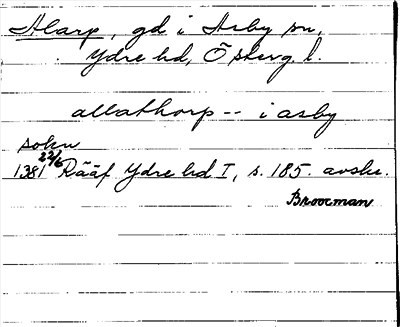 Alarp, gd i Asby sn,
Ydre hd, Östergl.
allathorp -- i asby
sokn
1381 22/6 Rääf Ydre hd I, s. 185. avskr.
Broocman